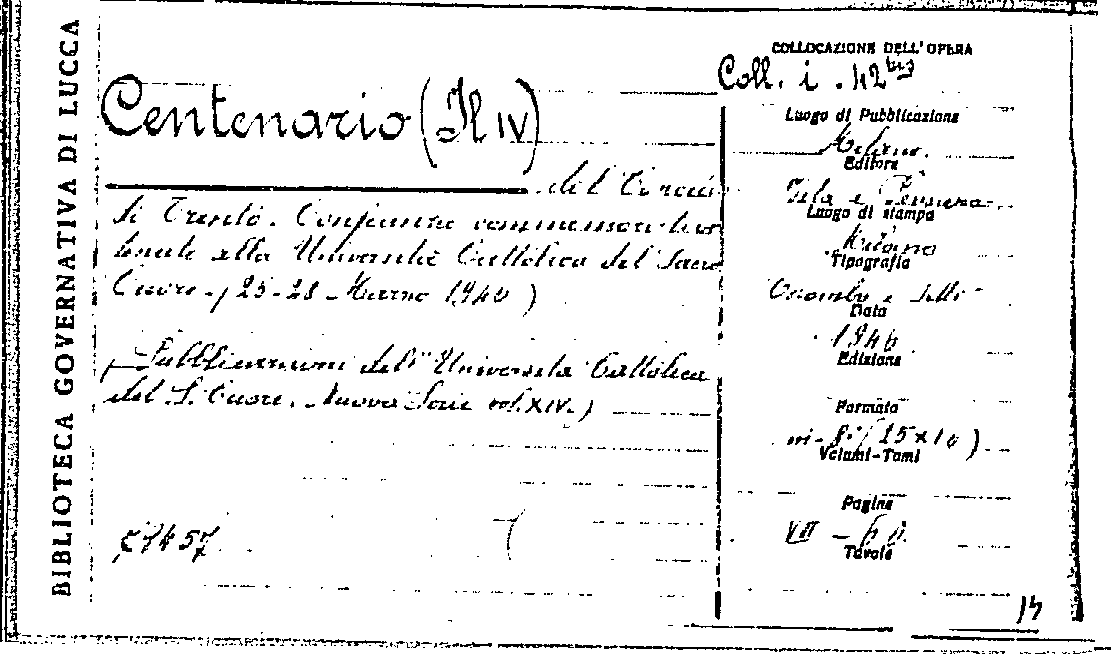 BIBLIOTECA GOVERNATIVA DI LUCCA
COLLOCAZIONE DELL'OPERA
Coll. i. 42 bis
Centenario (Il IV)
del Concilio
di Trento. Conferenze commemorative
tenute alla Università Cattolica del Sacro
Cuore - (25-28 Marzo 1946)
(Pubblicazioni dell'Università Cattolica
del S. Cuore. Nuova Serie vol. XIV.)
Luogo di Pubblicazione
Milano.
Editore
Vita e Pensiero
Luogo di stampa
Milano
Tipografia
Data
1946
Edizione
Formato
in-8° (25x10)
Volumi-Tomi
Pagine
VIII - 60
Tavole